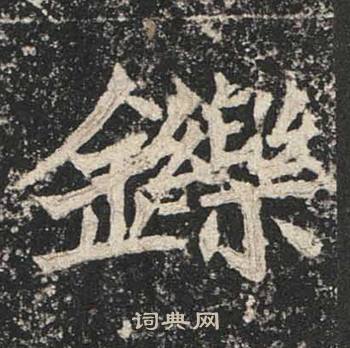 鑠
词典网